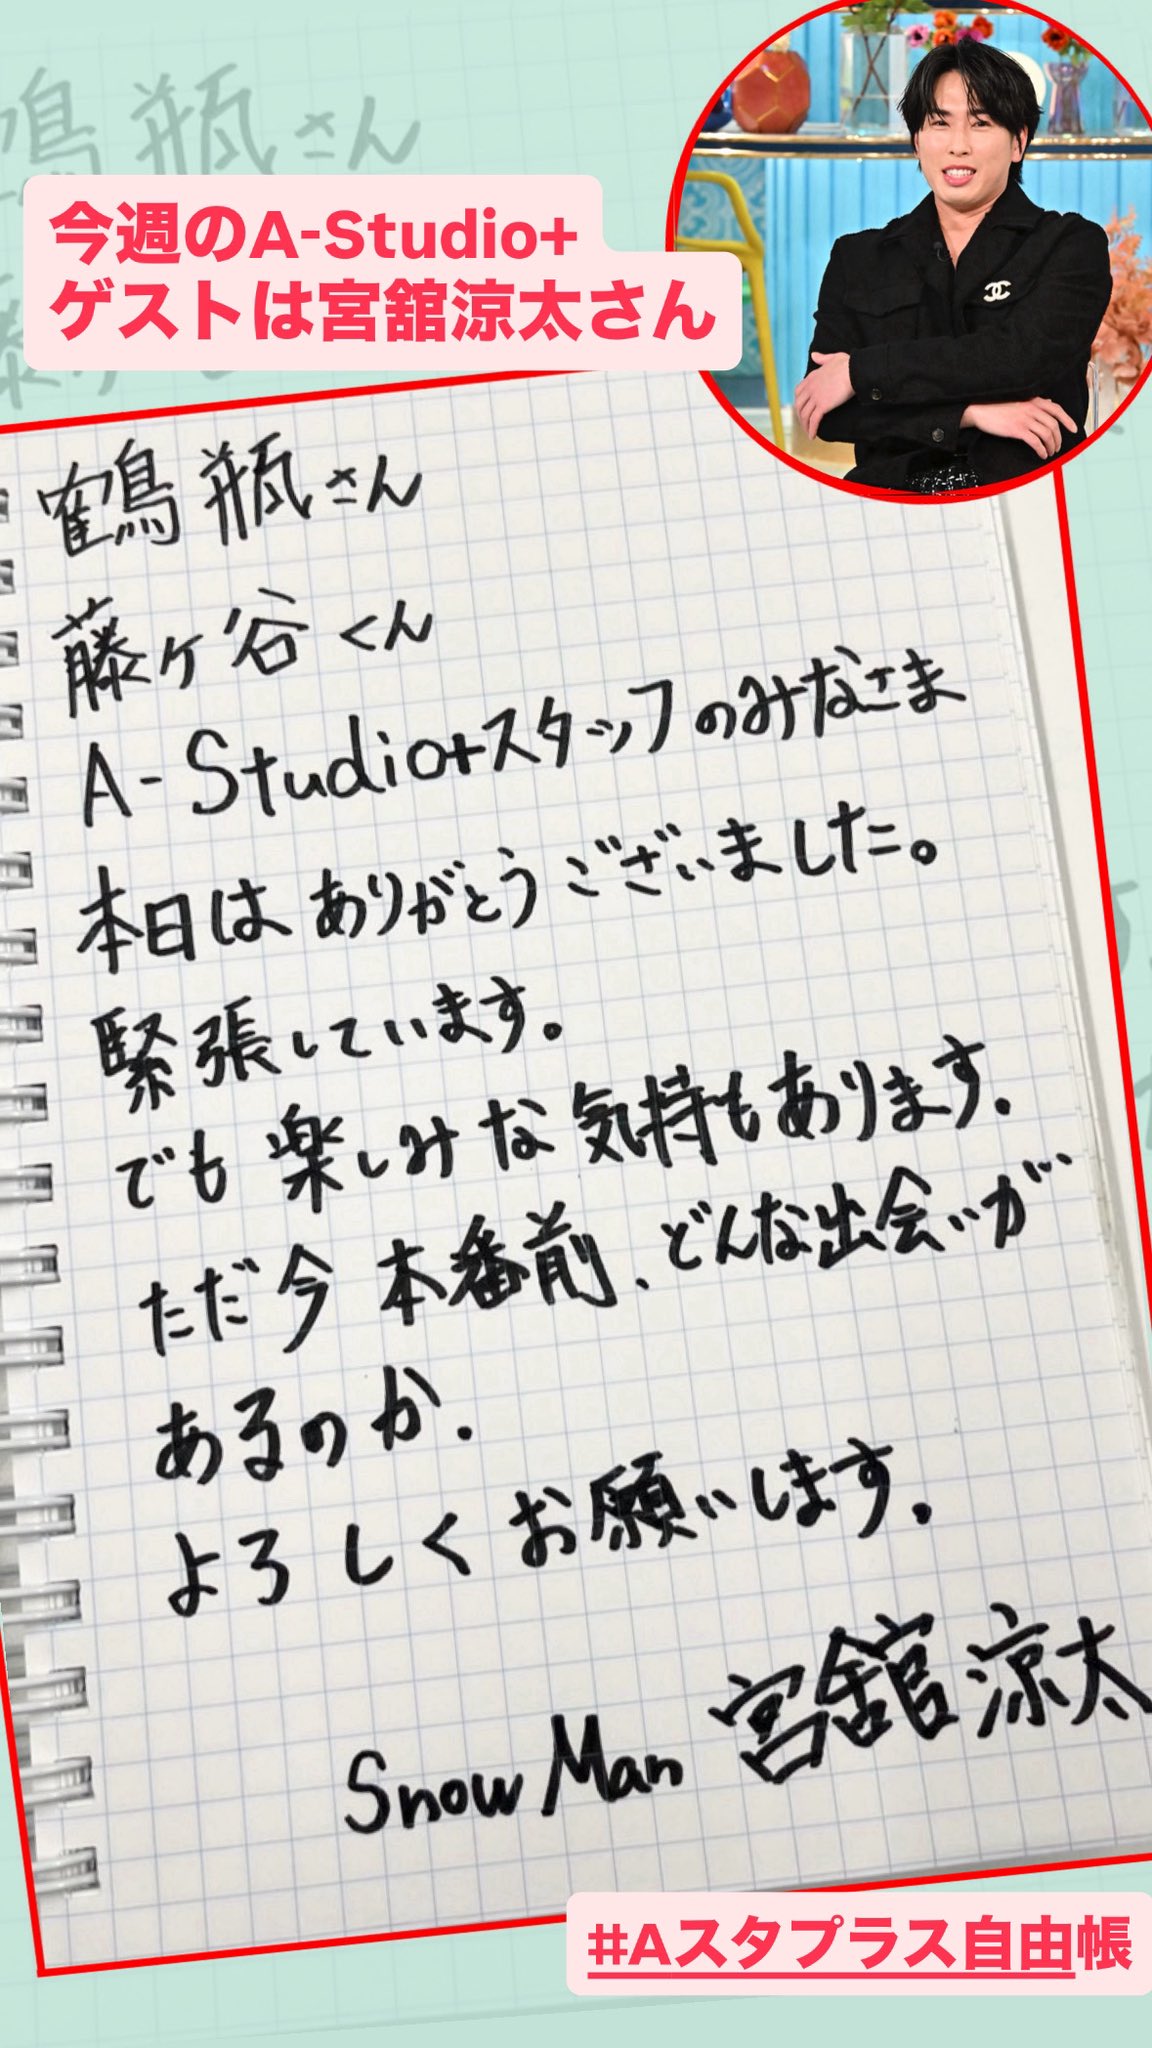 今週のA-Studio+
ゲストは宮舘涼太さん
鶴瓶さん
藤ヶ谷くん
A-Studio+スタッフのみなさま
本日はありがとうございました。
緊張しています。
でも楽しみな気持もあります.
ただ今本番前、どんな出会いが
あるのか.
よろしくお願いします.
Snow Man 宮舘涼太
#Aスタプラス自由帳